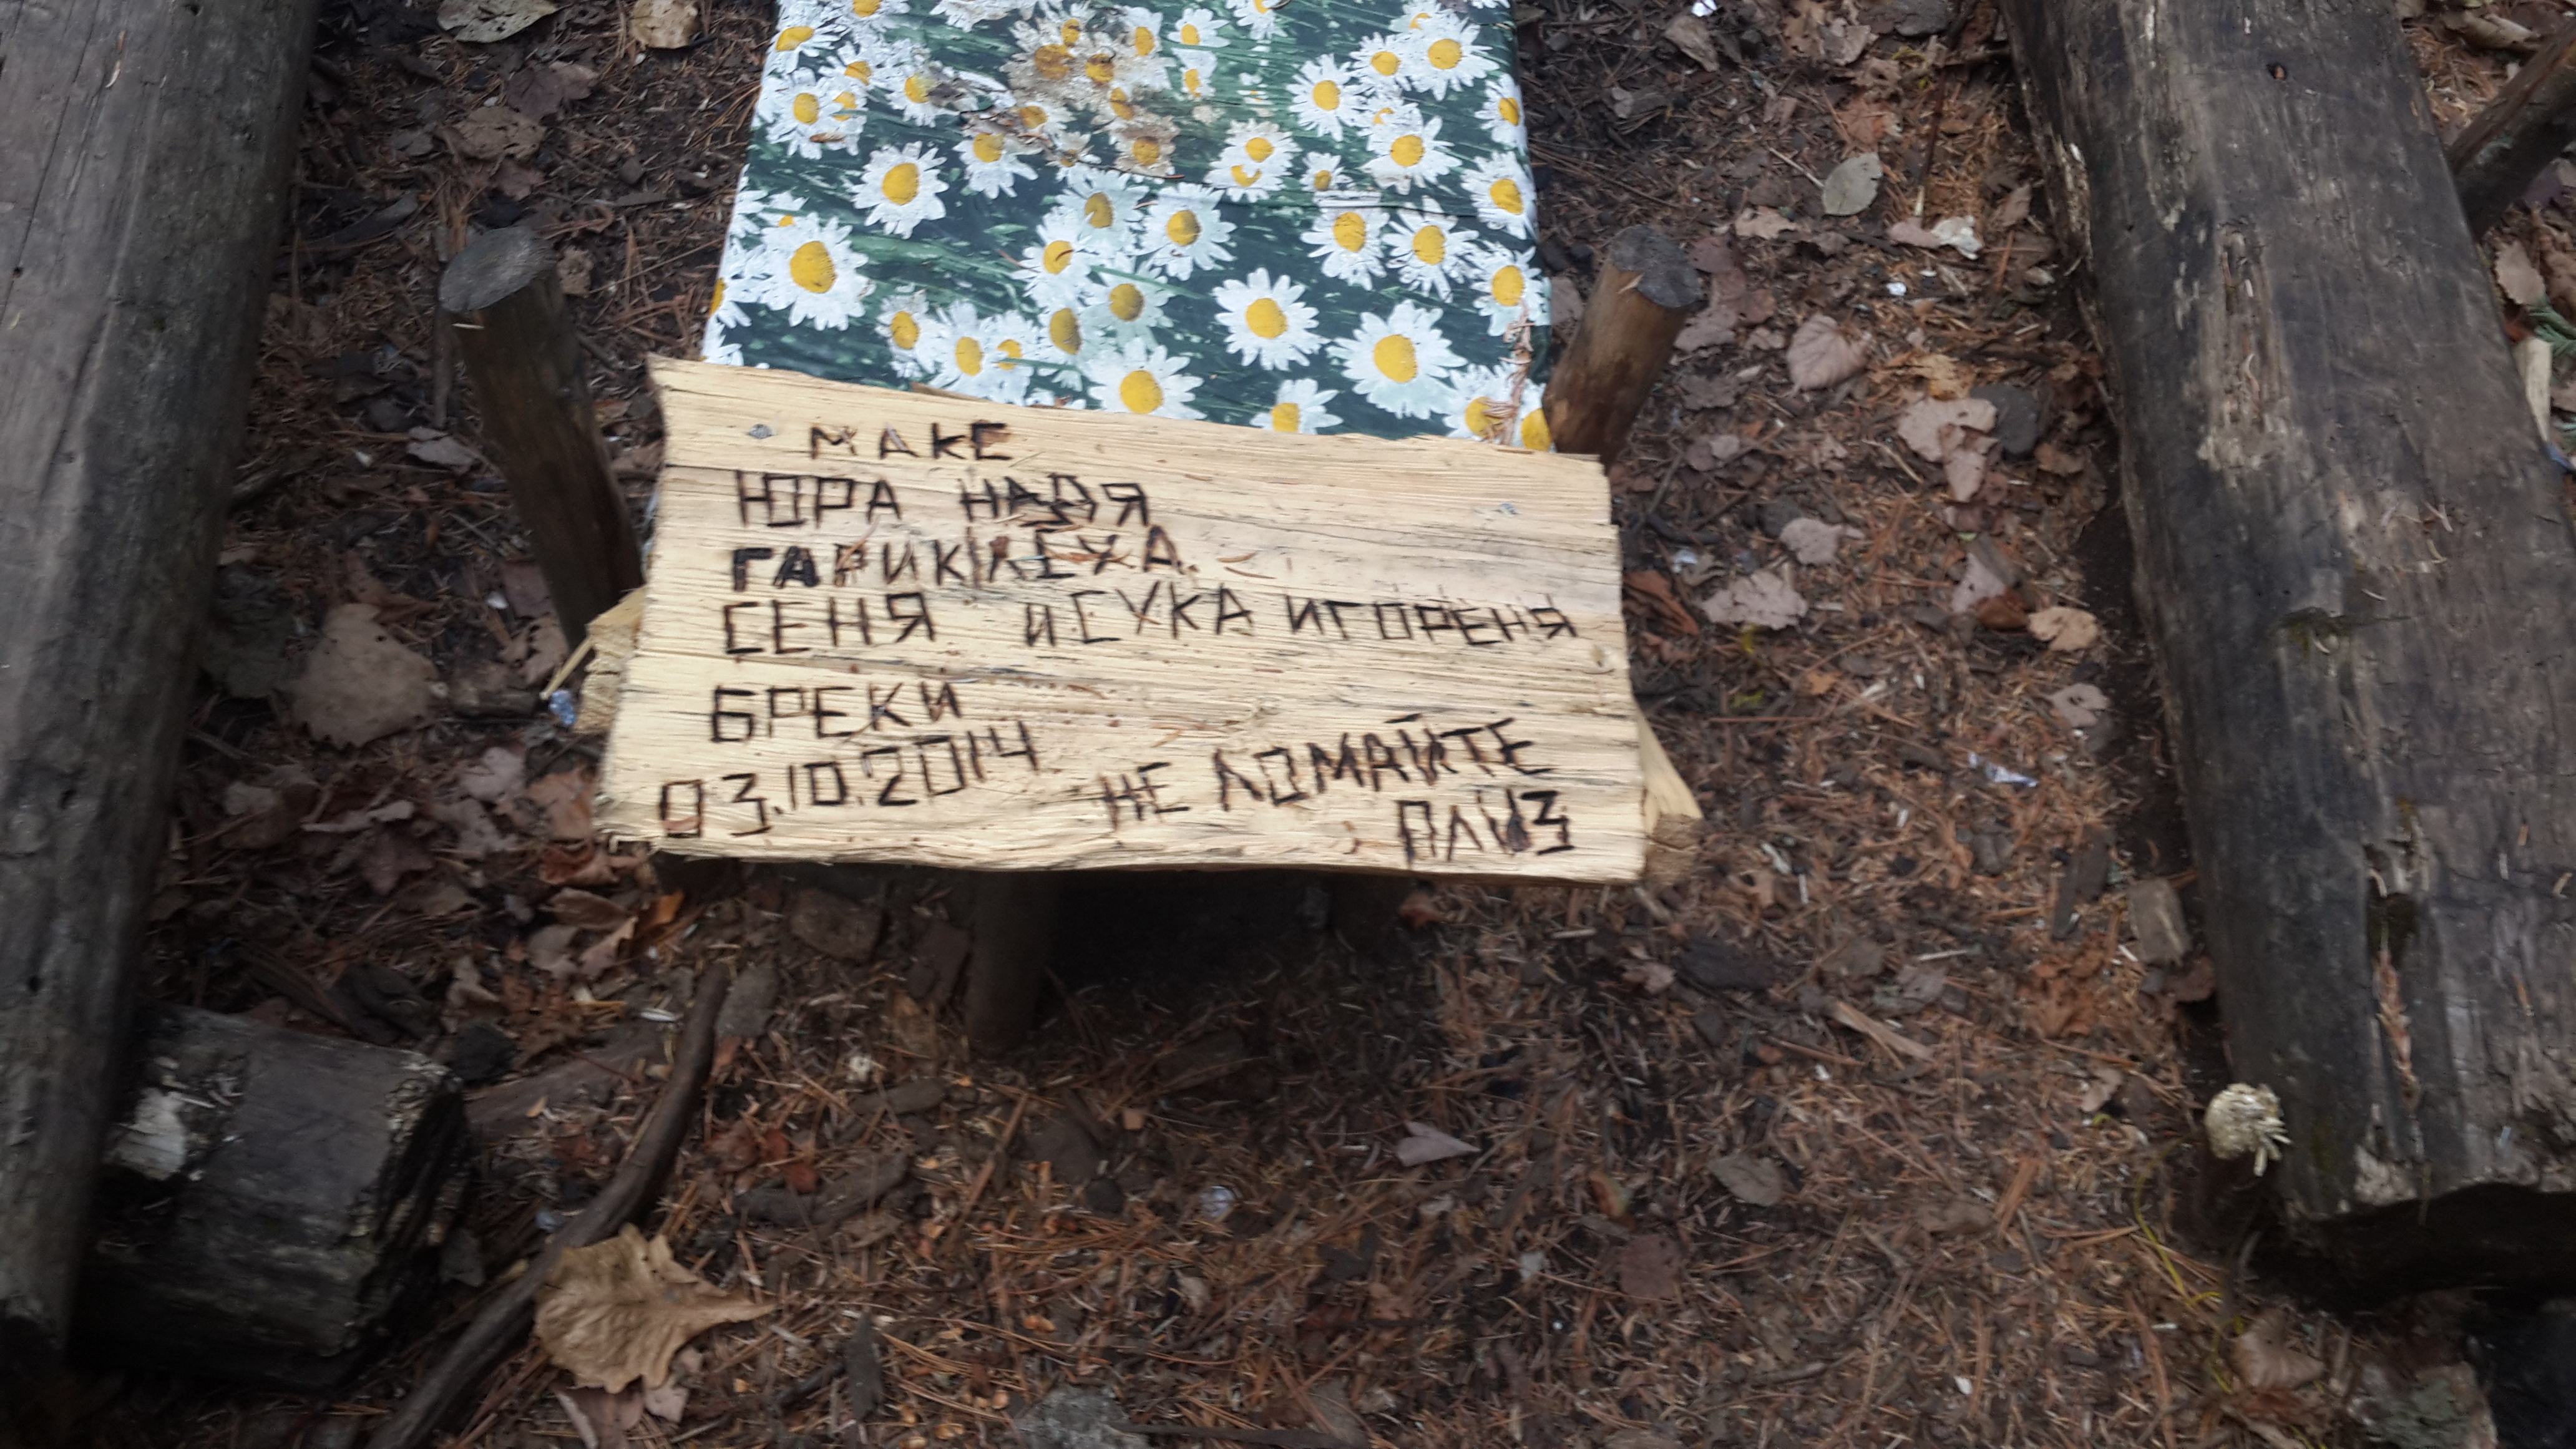 МАКЕ
ЮРА НАДЯ
ГАРИК ЛЕХА
СЕНЯ И СУКА ИГОРЕНЯ
БРЕКИ
03.10.2014
НЕ ЛОМАЙТЕ
ПЛИЗ